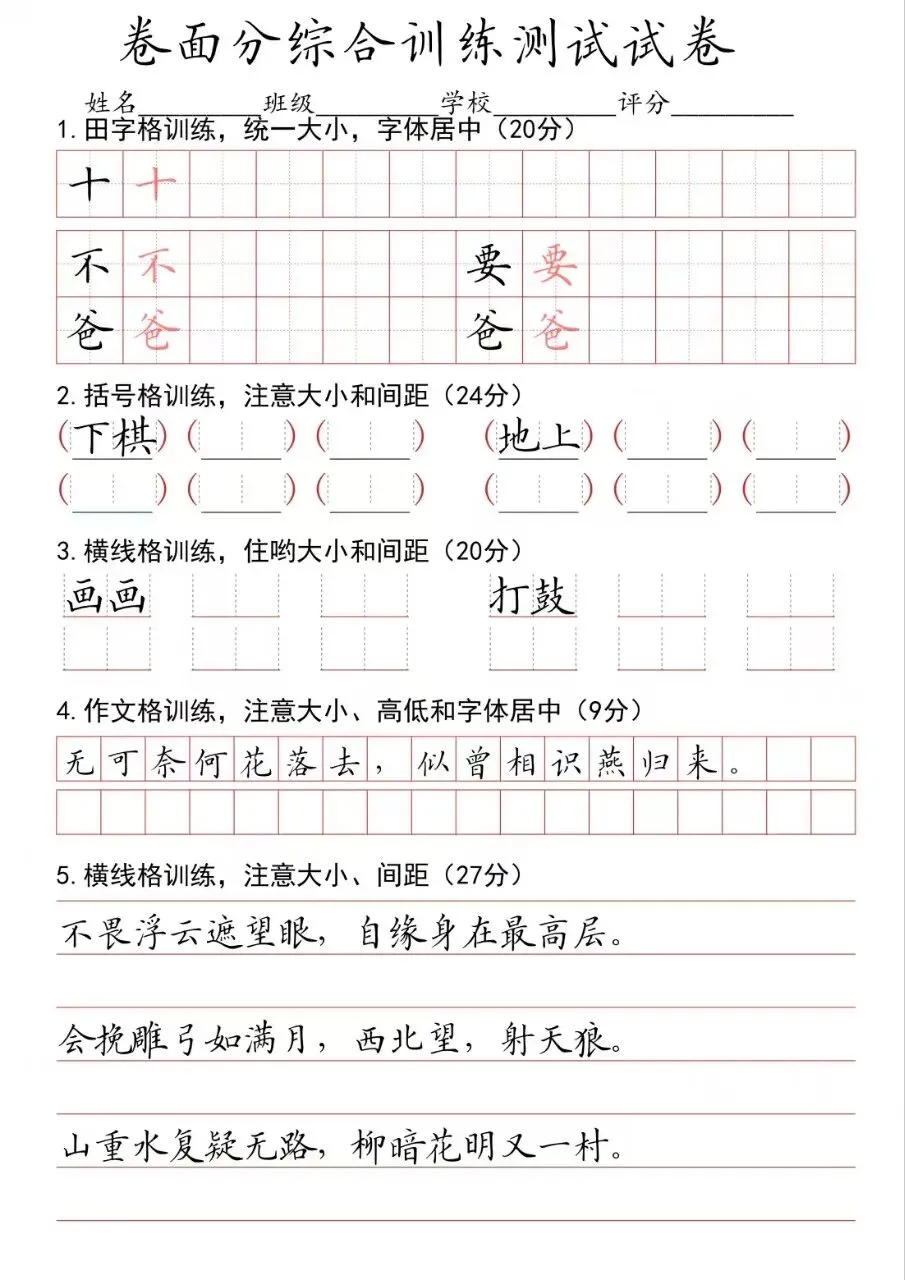 卷面分综合训练测试试卷
姓名________班级________学校________评分________
1.田字格训练，统一大小，字体居中（20分）
十 十
不 不 要 要
爸 爸 爸 爸
2.括号格训练，注意大小和间距（24分）
（下棋）（ ）（ ） （地上）（ ）（ ）
（ ）（ ）（ ） （ ）（ ）（ ）
3.横线格训练，住哟大小和间距（20分）
画画 打鼓
4.作文格训练，注意大小、高低和字体居中（9分）
无可奈何花落去，似曾相识燕归来。
5.横线格训练，注意大小、间距（27分）
不畏浮云遮望眼，自缘身在最高层。
会挽雕弓如满月，西北望，射天狼。
山重水复疑无路，柳暗花明又一村。